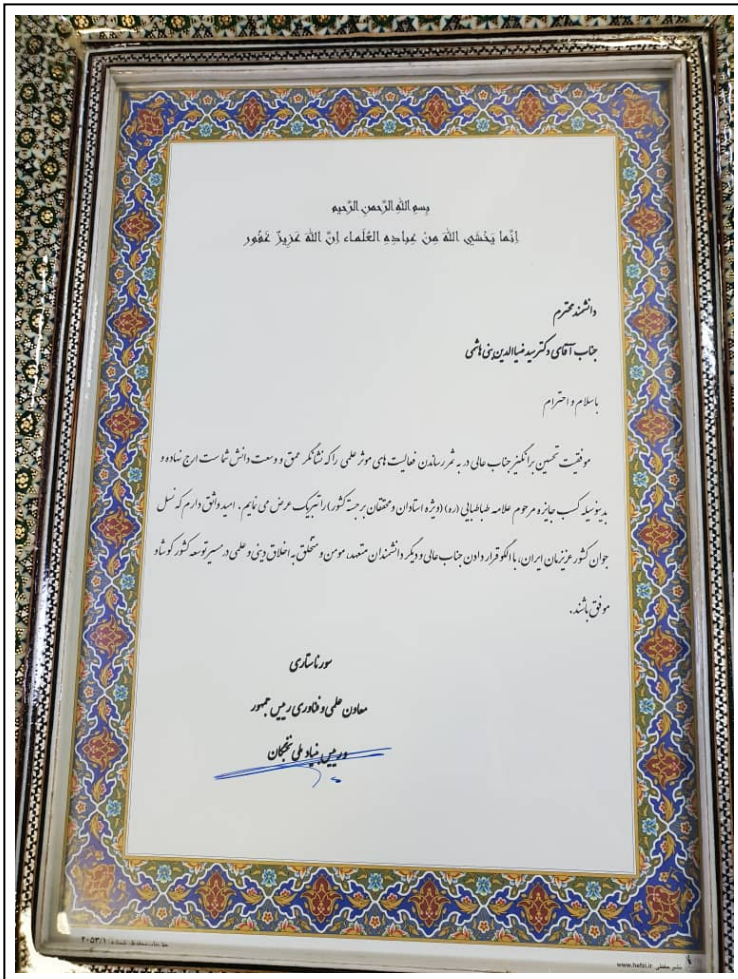 بسم الله الرّحمن الرّحیم
اِنَّما یَخشَی اللهَ مِن عِبادِهِ العُلَماء اِنَّ اللهَ عَزیزٌ غَفُور
دانشمند محترم
جناب آقای دکتر سید ضیاالدین بنی هاشمی
باسلام و احترام
موفقیت تحسین برانگیز جناب عالی در به ثمر رساندن فعالیت های موثر علمی را که نشانگر عمق و وسعت دانش شماست ارج نهاده و
بدینوسیله کسب جایزه مرحوم علامه طباطبایی (ره) (ویژه استادان و محققان برجسته کشور) را تبریک عرض می نمایم. امید واثق دارم که نسل
جوان کشور عزیزمان ایران، با الگو قرار دادن جناب عالی و دیگر دانشمندان متعهد، مومن و متخلق به اخلاق دینی و علمی در مسیر توسعه کشور کوشا و
موفق باشند.
سورنا ستاری
معاون علمی و فناوری رییس جمهور
و رییس بنیاد ملی نخبگان
www.hafizi.ir